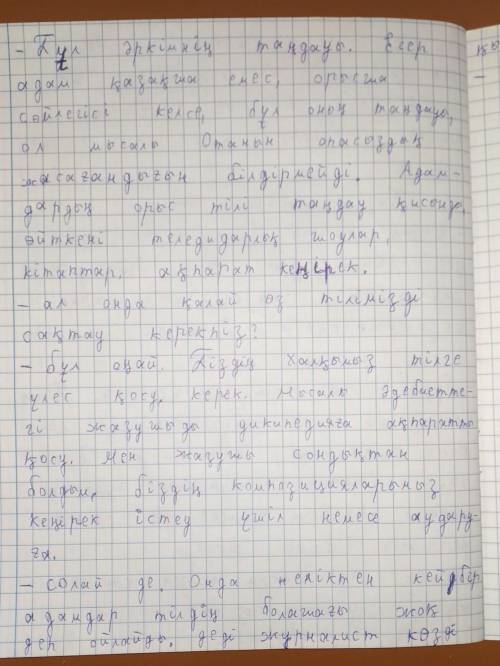 - Бұл әркімнің таңдауы. Егер
адам қазақша емес, орысша
сөйлегісі келсе, бұл оның таңдауы,
ол мысалы Отанын опасыздық
жасағандығын білдірмейді. Адам-
дардың орыс тілі таңдау қисынды,
өйткені теледидарлық шоулар,
кітаптар, ақпарат кеңірек.
- ал онда қалай өз тілімізді
сақтау керекпіз?
- бұл оңай. Біздің халқымыз тілге
үлес қосу, керек. Мысалы әдебиетте-
гі жазушыды википедияға ақпаратты
қосу. Мен жазушы сондықтан
болдым, біздің композицияларымыз
кеңірек істеу үшін немесе аудару-
ға.
- солай де. Онда неліктен кейбір
адамдар тілдің болашағы жоқ
деп ойлайды, деді журналист көзді
қы
-